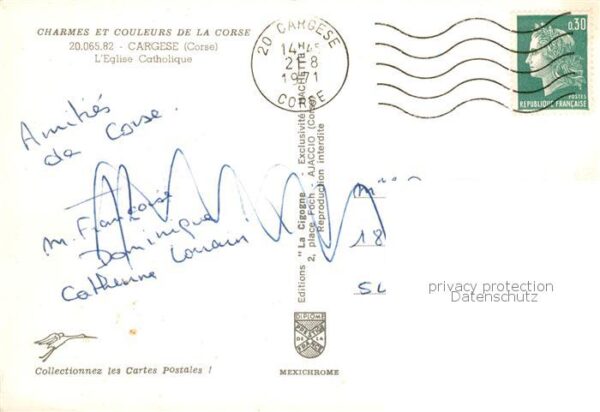 CHARMES ET COULEURS DE LA CORSE
20.065.82 - CARGESE (Corse)
L'Eglise Catholique
20 CARGESE
14H45
21-8
1971
CORSE
0,30
POSTES
REPUBLIQUE FRANÇAISE
Amitiés
de Corse.
M. Françoise
Dominique
Catherine
Editions "La Cigogne - Exclusivité
2, place Foch - AJACCIO (Corse)
Reproduction interdite
18
privacy protection
Datenschutz
Collectionnez les Cartes Postales !
MEXICHROME